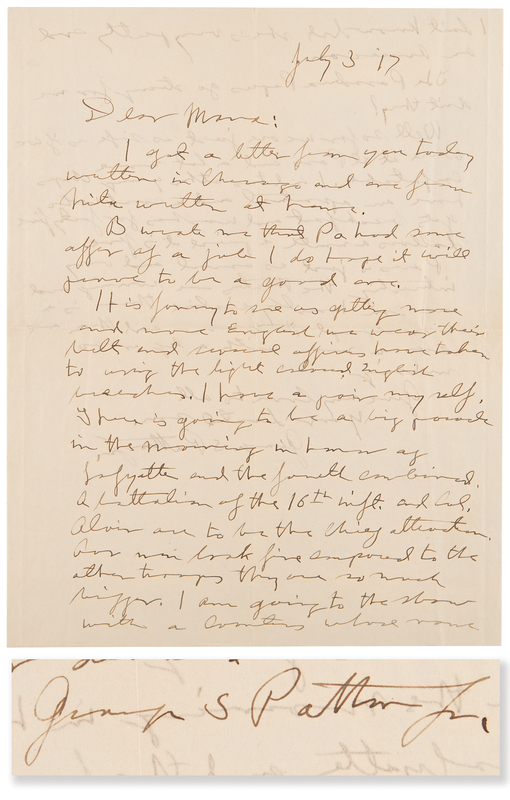 July 3 '17
Dear Mama:
I got a letter from you today
written in Chicago and one from
Nita written at home.
B wrote me that Pa had some
offer of a job I do hope it will
prove to be a good one.
It is funny to see us getting more
and more English we wear their
belt and several officers have taken
to using the light colored English
breeches. I have a pair my self.
There is going to be a big parade
in the morning in honor of
Lafyatte and the fourth combined.
A battalion of the 16th inft. and Col.
Alvin are to be the chief attraction.
Our men look fine compared to the
other troops they are so much
bigger. I am going to the show
with a Comtess whose name
George S Patton Jr.